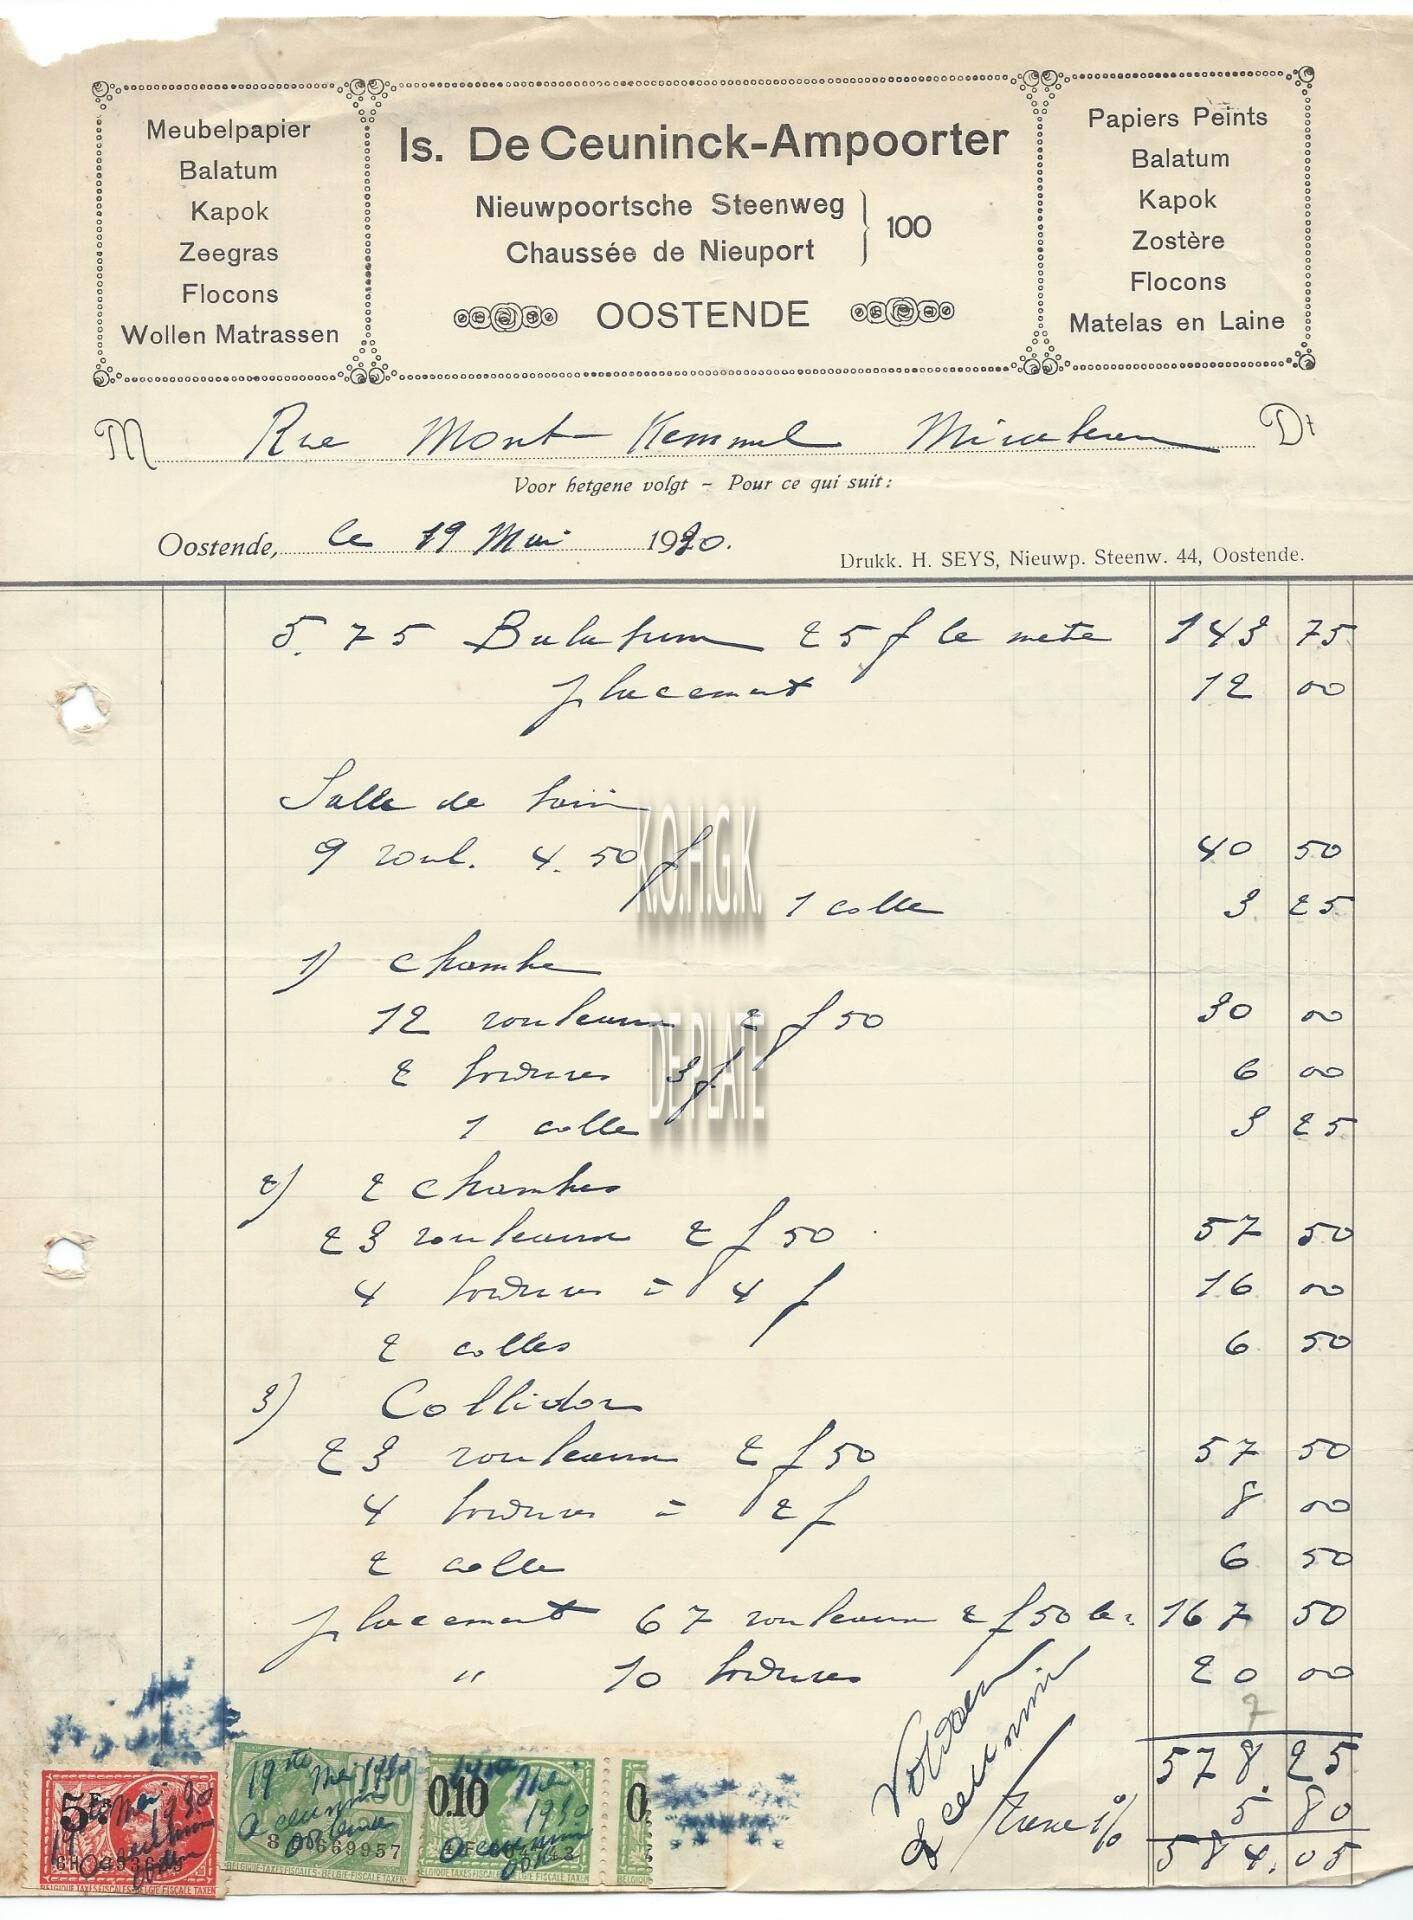 Meubelpapier
Balatum
Kapok
Zeegras
Flocons
Wollen Matrassen
Is. De Ceuninck-Ampoorter
Nieuwpoortsche Steenweg
Chaussée de Nieuport
100
OOSTENDE
Papiers Peints
Balatum
Kapok
Zostère
Flocons
Matelas en Laine
M Rue Mont Kemmel Dt
Voor hetgene volgt – Pour ce qui suit:
Oostende, le 19 Mai 1930.
Drukk. H. SEYS, Nieuwp. Steenw. 44, Oostende.
5.75 Balatum 25 f le mete 143 75
placement 12 00
Salle de bain
9 roul. 4.50 f 40 50
1 colle 3 25
1) chambre
12 rouleaux 2 f 50 30 00
2 bordures 3 f 6 00
1 colle 3 25
2) 2 chambres
23 rouleaux 2 f 50 57 50
4 bordures = 4 f 16 00
2 colles 6 50
3) Collidor
23 rouleaux 2 f 50 57 50
4 bordures = 2 f 8 00
2 colle 6 50
placement 67 rouleaux 2 f 50 167 50
" 10 bordures 20 00
7
578.25
Voldaen
Deceuninck
Taxe 1% 5 80
584.05
K.O.H.G.K.
DE PLATE
5 Fr
19 Mei 1930
Deceuninck
BELGIQUE-TAXES FISCALES-BELGIE-FISCALE TAXEN
19 Mei 1930
Deceuninck
669957
BELGIQUE-TAXES FISCALES-BELGIE-FISCALE TAXEN
0.10
Mei
1930
Deceuninck
0